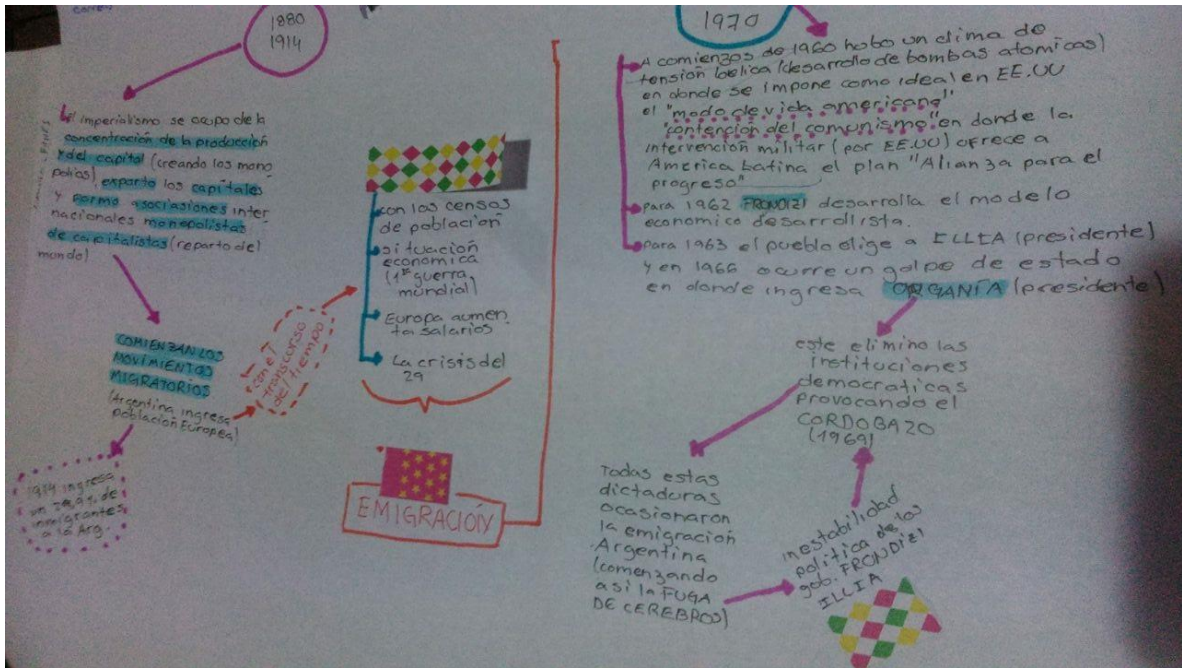 1880
1914
El imperialismo se ocupo de la
concentración de la producción
y del capital (creando los mono
polios), exporto los capitales
y formo asosiasiones inter
nacionales monopolistas
de capitalistas (reparto del
mundo)
COMIENZAN LOS
MOVIMIENTOS
MIGRATORIOS
(Argentina ingresa
población Europea)
1914 ingresa
un de
inmigrantes
a la Arg.
con el
transcurso
del tiempo
con los censos
de población
situación
economica
(1º guerra
mundial)
Europa aumen
ta salarios
La crisis del
29
EMIGRACIÓN
1970
A comienzos de 1960 hubo un clima de
tensión belica (desarrollo de bombas atomicas)
en donde se impone como ideal en EE.UU
el "modo de vida americana"
"contención del comunismo" en donde la
intervención militar (por EE.UU) ofrece a
America Latina el plan "Alianza para el
progreso"
para 1962 FRONDIZI desarrolla el modelo
economico desarrollista.
para 1963 el pueblo elige a ILLIA (presidente)
y en 1966 ocurre un golpe de estado
en donde ingresa ORGANÍA (presidente)
este elimino las
instituciones
democraticas
provocando el
CORDOBAZO
(1969)
Todas estas
dictaduras
ocasionaron
la emigración
Argentina
(comenzando
asi la FUGA
DE CEREBROS)
inestabilidad
politica de los
gob. FRONDIZI
ILLIA